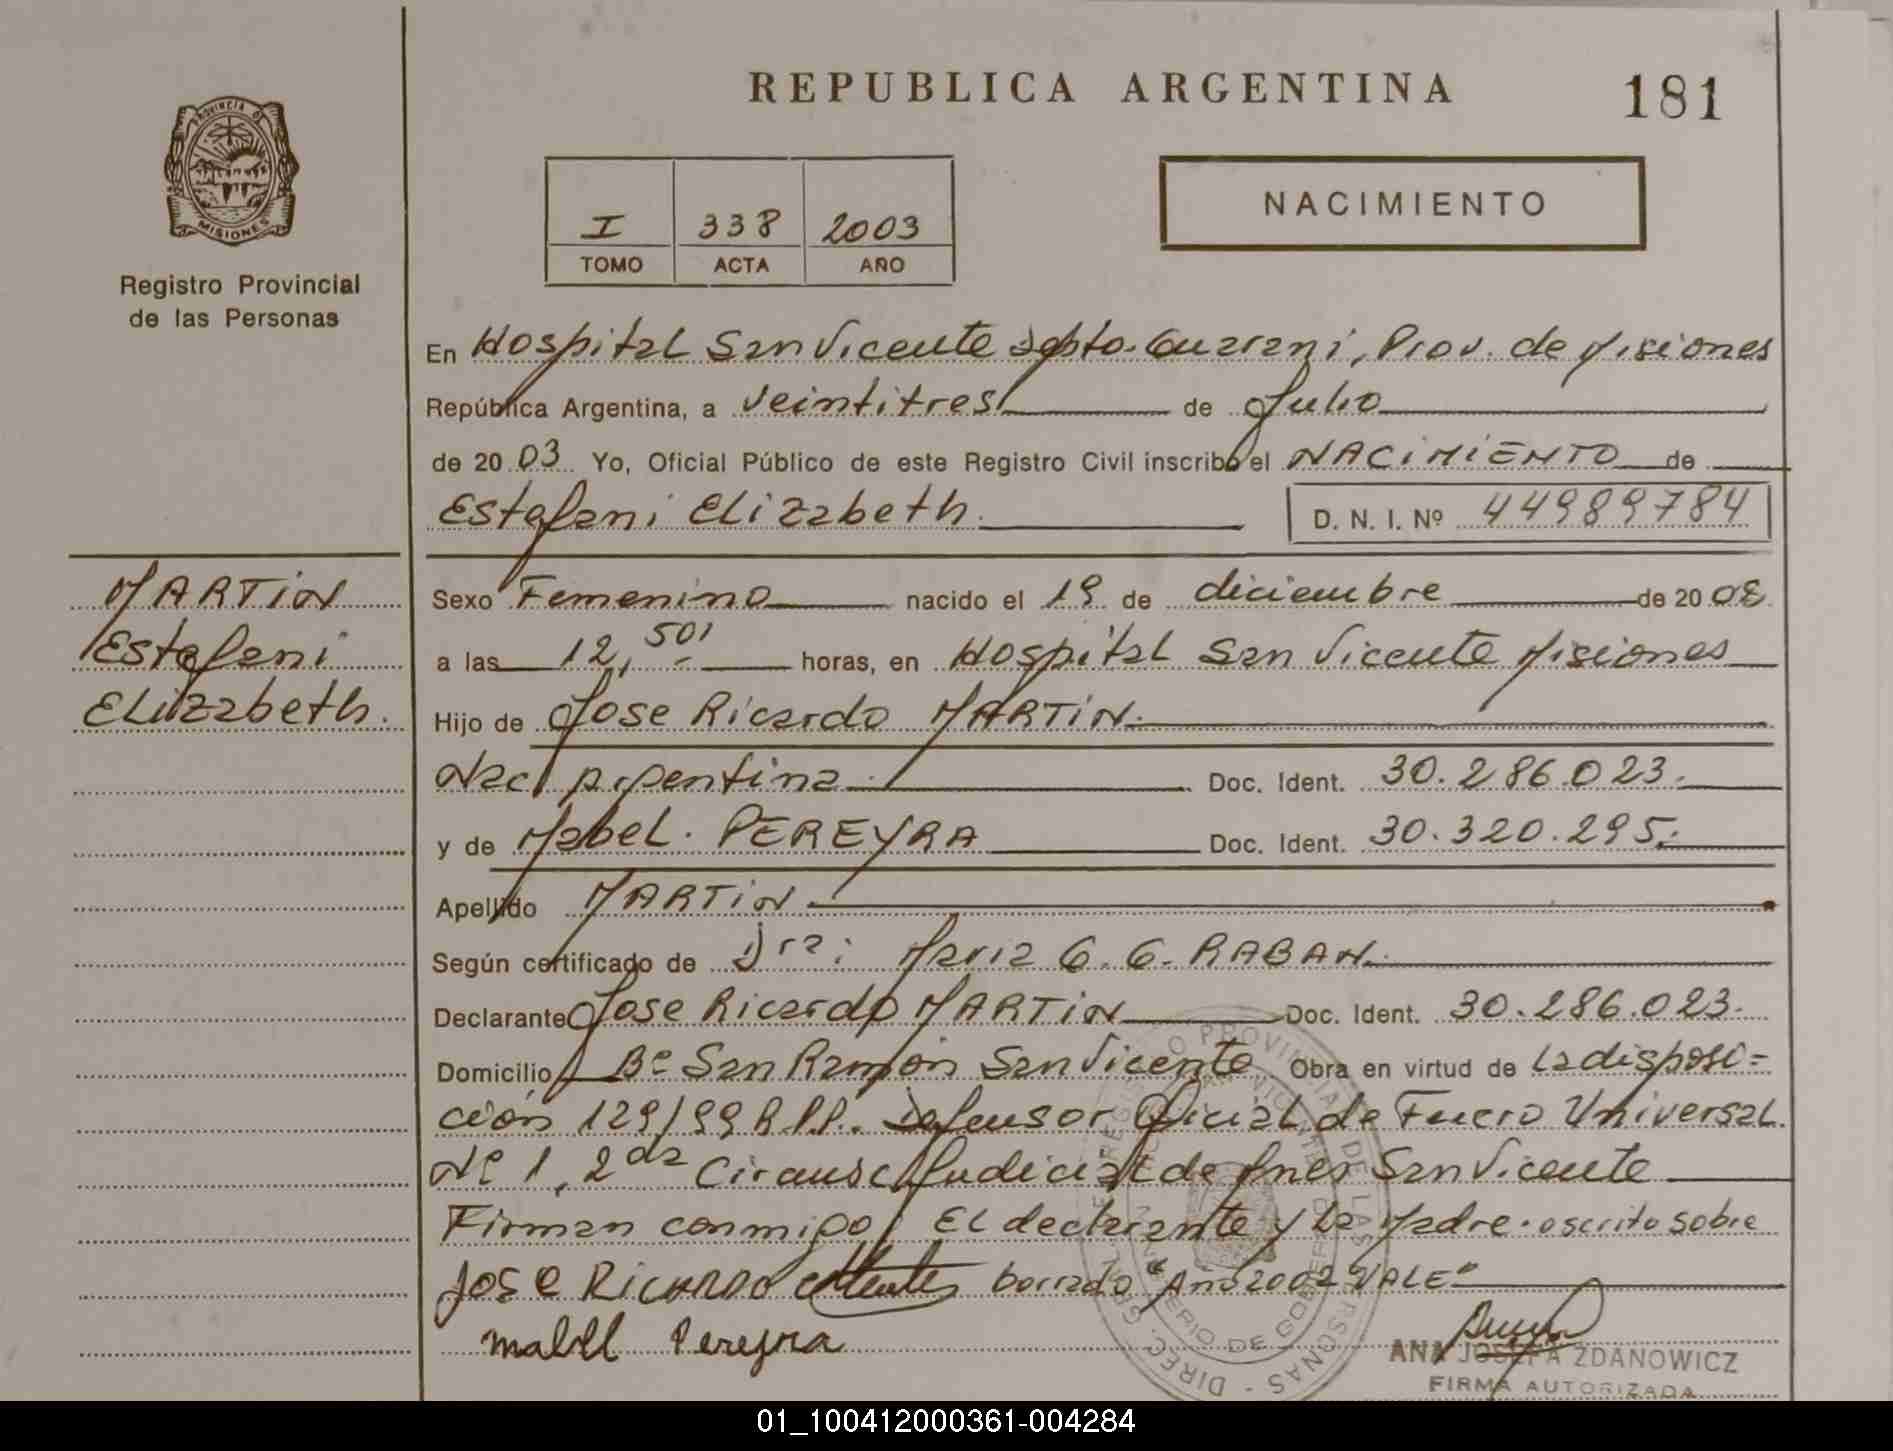 REPUBLICA ARGENTINA
181
PROVINCIA DE
MISIONES
Registro Provincial
de las Personas
I 338 2003
TOMO ACTA AÑO
NACIMIENTO
En Hospital San Vicente Dpto. Guarani, Prov. de Misiones
República Argentina, a veintitres de Julio
de 20 03 Yo, Oficial Público de este Registro Civil inscribo el NACIMIENTO de
Estefani Elizabeth.
D. N. I. Nº 44989784
MARTIN
Estefani
Elizabeth.
Sexo Femenino nacido el 19 de diciembre de 20 02
a las 12,50' horas, en Hospital San Vicente Misiones
Hijo de Jose Ricardo MARTIN.
Nac. Argentina. Doc. Ident. 30.286.023.
y de Mabel. PEREYRA Doc. Ident. 30.320.295.
Apellido MARTIN.
Según certificado de Dra: Maria G. G. RABAN.
Declarante Jose Ricardo MARTIN Doc. Ident. 30.286.023.
Domicilio Bº San Ramon San Vicente Obra en virtud de la disposi=
ción 129/99 R.P.P. Defensor Oficial de Fuero Universal.
Nº 1, 2da Circunsc. Judicial de San Vicente
Firman conmigo, El declarante y la Madre. escrito sobre
borrado "Año 2002 VALE"
JOSE RICARDO
Mabel Pereyra
ANA JOSEFA ZDANOWICZ
FIRMA AUTORIZADA
01_100412000361-004284